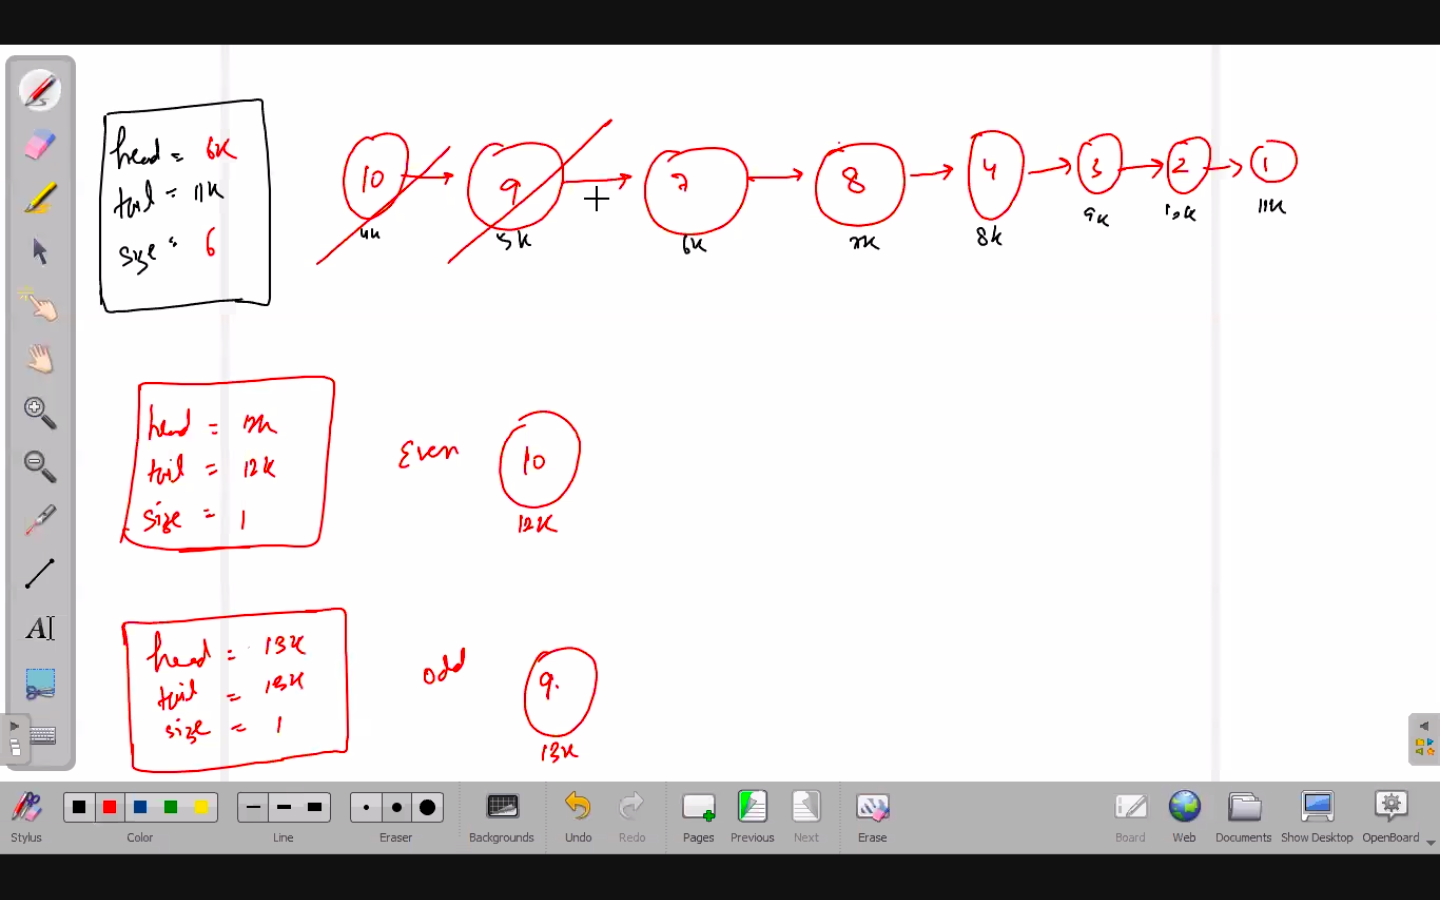 head = 6k
tail = 11k
size = 6
10 9 7 8 4 3 2 1
4k 5k 6k 7k 8k 9k 10k 11k
head = 12k
tail = 12k
size = 1
Even
10
12k
head = 13k
tail = 13k
size = 1
odd
9.
13k
AI
Stylus
Color
Line
Eraser
Backgrounds
Undo
Redo
Pages
Previous
Next
Erase
Board
Web
Documents
Show Desktop
OpenBoard